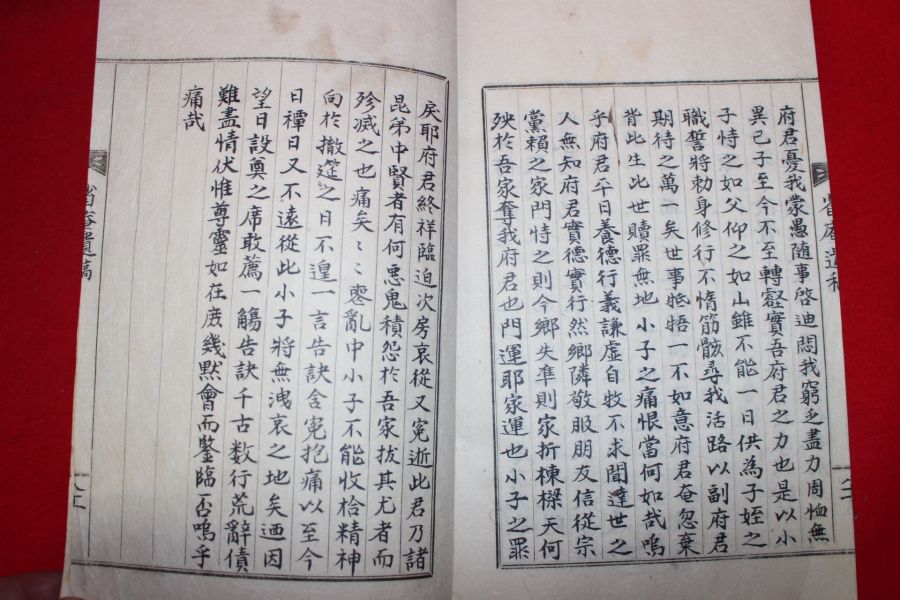 府君憂我蒙愚隨事啓迪悶我窮乏盡力周恤無
異己子至今不至轉壑實吾府君之力也是以小
子恃之如父仰之如山雖不能一日供為子姪之
職誓將勅身修行不惰筋骸尋我活路以副府君
期待之萬一矣世事牴牾一不如意府君奄忽棄
背此生此世贖罪無地小子之痛恨當何如哉嗚
乎府君平日養德行義謙虛自牧不求聞達世之
人無知府君實德實行然鄉隣敬服朋友信從宗
黨賴之家門恃之則今鄉失準則家折棟樑天何
殃於吾家奪我府君也門運耶家運也小子之罪
戾耶府君終祥臨迫次房哀從又冤逝此君乃諸
昆弟中賢者有何惡鬼積怨於吾家拔其尤者而
殄滅之也痛矣〻亂中小子不能收拾精神
向於撤筵之日不遑一言告訣含冤抱痛以至今
日禫日又不遠從此小子將無洩哀之地矣迺因
望日設奠之席敢薦一觴告訣千古数行荒辭債
難盡情伏惟尊靈如在庶幾默會而鑒臨否嗚乎
痛哉
遺稿